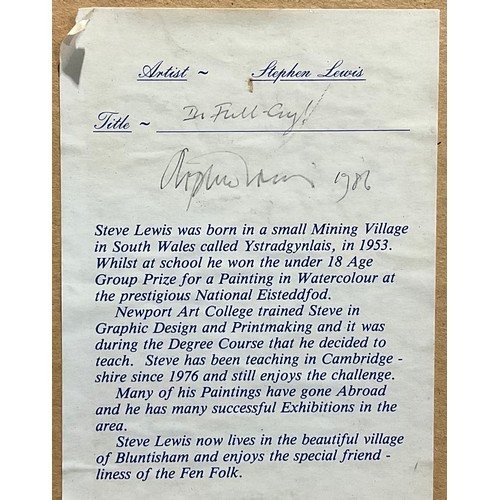 Artist ~ Stephen Lewis
Title ~ In Full-Cry!
Stephen Lewis 1986
Steve Lewis was born in a small Mining Village
in South Wales called Ystradgynlais, in 1953.
Whilst at school he won the under 18 Age
Group Prize for a Painting in Watercolour at
the prestigious National Eisteddfod.
Newport Art College trained Steve in
Graphic Design and Printmaking and it was
during the Degree Course that he decided to
teach. Steve has been teaching in Cambridge -
shire since 1976 and still enjoys the challenge.
Many of his Paintings have gone Abroad
and he has many successful Exhibitions in the
area.
Steve Lewis now lives in the beautiful village
of Bluntisham and enjoys the special friend -
liness of the Fen Folk.